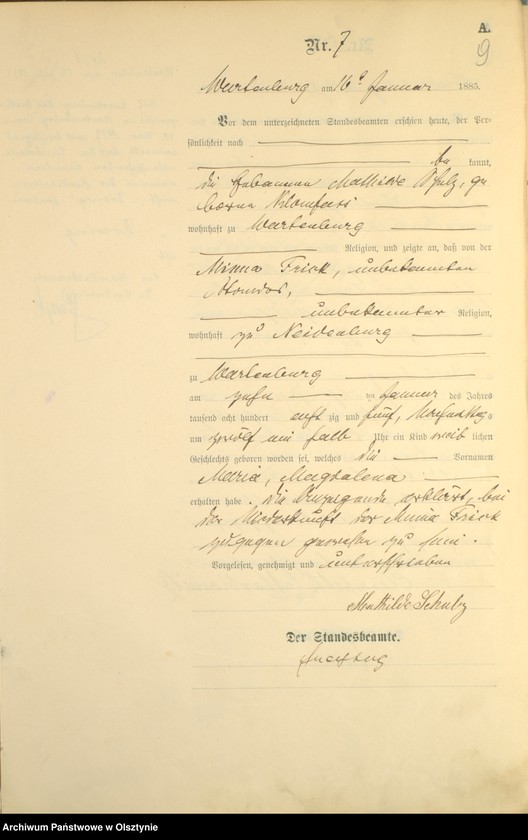 A.
9
Nr. 7
Wartenburg am 16ten Januar 1885.
Vor dem unterzeichneten Standesbeamten erschien heute, der Per-
sönlichkeit nach
be kannt,
die Hebamme Mathilde Schulz, ge
borne Klomfass
wohnhaft zu Wartenburg
Religion, und zeigte an, daß von der
Minna Frick, unbekannten
Standes,
unbekannter Religion,
wohnhaft zu Neidenburg
zu Wartenburg
am zehn ten Januar des Jahres
tausend acht hundert acht zig und fünf, Nachmittags
um zwölf ein halb Uhr ein Kind weib lichen
Geschlechts geboren worden sei, welches die Vornamen
Maria, Magdalena
erhalten habe. Die Anzeigende erklärt, bei
der Niederkunft der Minna Frick
zugegen gewesen zu sein.
Vorgelesen, genehmigt und unterschrieben
Mathilde Schulz
Der Standesbeamte.
Archiwum Państwowe w Olsztynie